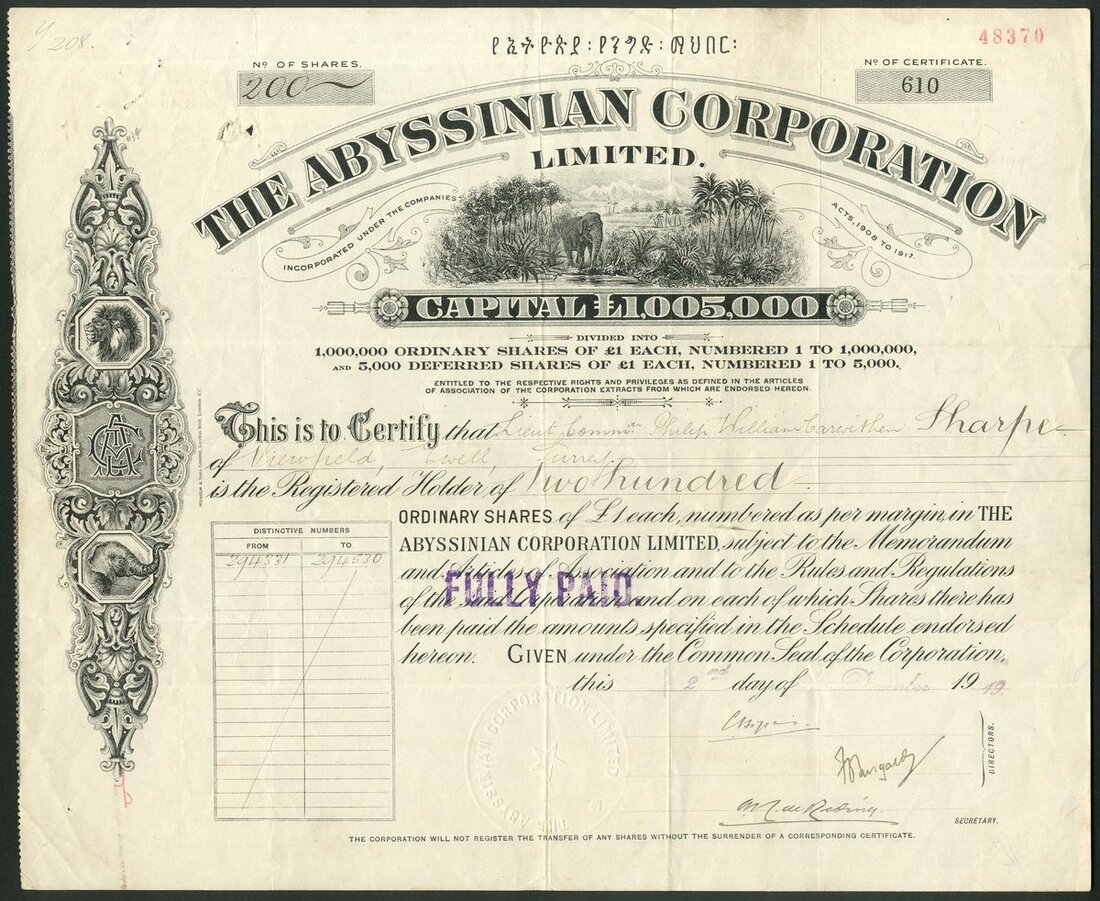 Y/208.
የኢትዮጵያ፡የንግድ፡ማህበር፡
48370
Nº OF SHARES.
200
Nº OF CERTIFICATE.
610
THE ABYSSINIAN CORPORATION
LIMITED.
INCORPORATED UNDER THE COMPANIES
ACTS, 1908 TO 1917
CAPITAL £1,005,000
DIVIDED INTO
1,000,000 ORDINARY SHARES OF £1 EACH, NUMBERED 1 TO 1,000,000,
AND 5,000 DEFERRED SHARES OF £1 EACH, NUMBERED 1 TO 5,000.
ENTITLED TO THE RESPECTIVE RIGHTS AND PRIVILEGES AS DEFINED IN THE ARTICLES
OF ASSOCIATION OF THE CORPORATION EXTRACTS FROM WHICH ARE ENDORSED HEREON.
This is to Certify that Lieut Commr Philip William Carwithen Sharpe
of Viewfield, Ewell, Surrey
is the Registered Holder of Two Hundred
DISTINCTIVE NUMBERS
FROM TO
294331 294530
ORDINARY SHARES of £1 each, numbered as per margin, in THE
ABYSSINIAN CORPORATION LIMITED, subject to the Memorandum
and Articles of Association and to the Rules and Regulations
FULLY PAID.
of the said Corporation and on each of which Shares there has
been paid the amounts specified in the Schedule endorsed
hereon. GIVEN under the Common Seal of the Corporation,
this 2nd day of December 1919.
THE ABYSSINIAN CORPORATION LIMITED
DIRECTORS.
SECRETARY.
THE CORPORATION WILL NOT REGISTER THE TRANSFER OF ANY SHARES WITHOUT THE SURRENDER OF A CORRESPONDING CERTIFICATE.